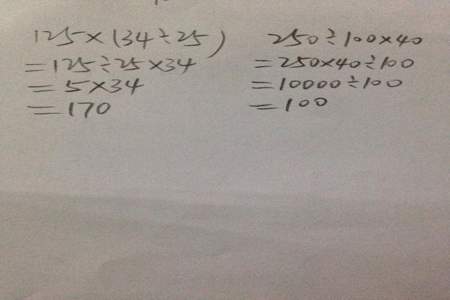 125×(34÷25)
=125÷25×34
=5×34
=170
250÷100×40
=250×40÷100
=10000÷100
=100